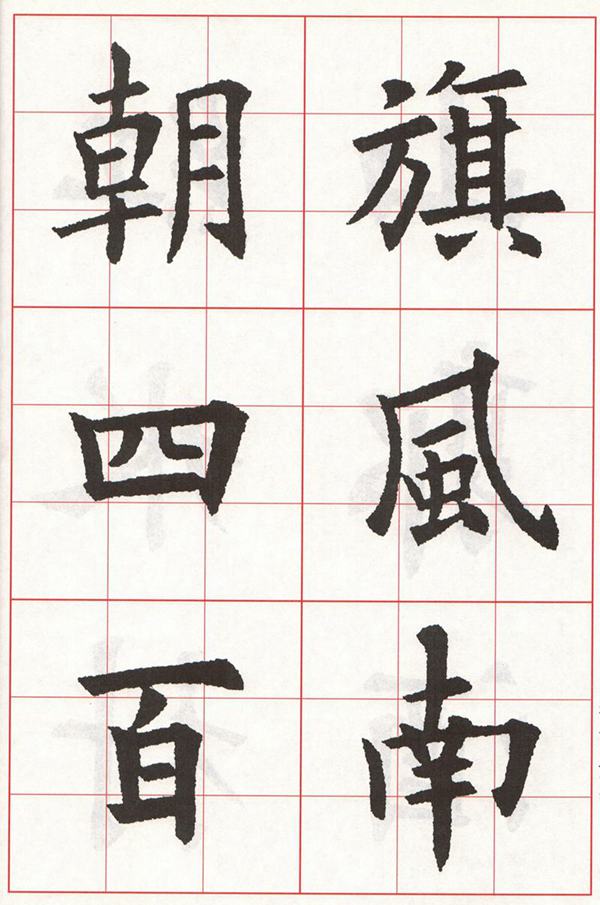 旗風南
朝四百